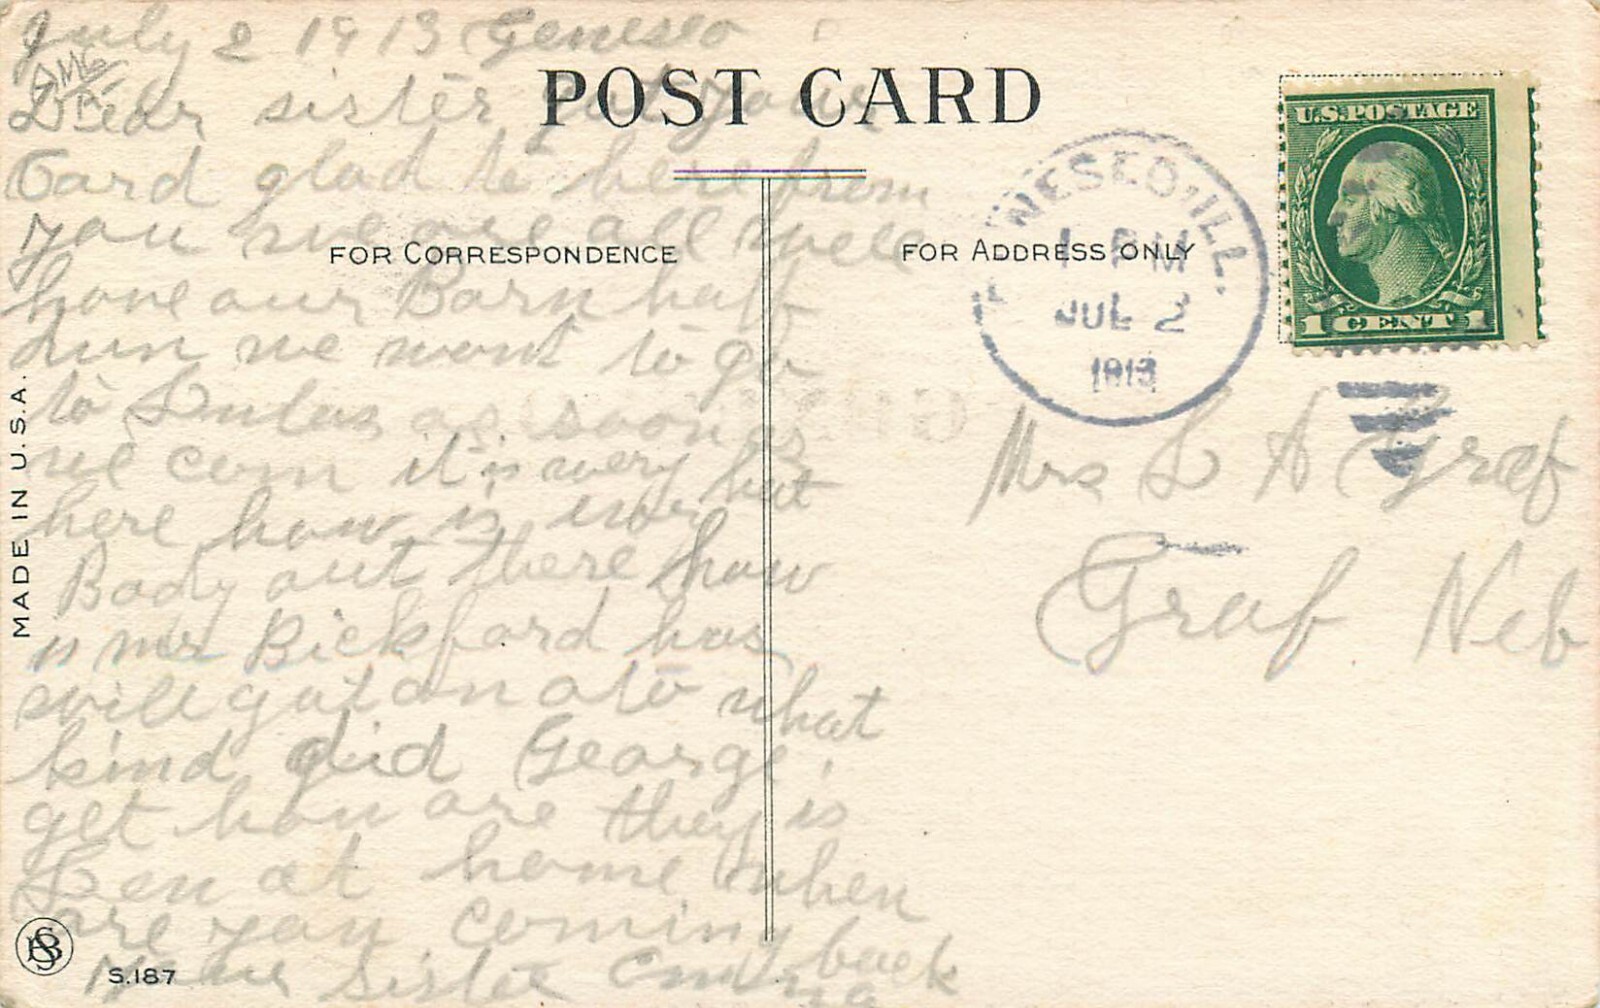 July 2 1913 Geneseo
Dear sister got your
Card glad to here from
you we are all well
have our Barn half
dun we want to go
to as soon as
we com it is very hot
here how is every
Body out there how
is mr Bickford has
will got an oto what
kind did George
get how are they is
Len at home when
are you coming back
your sister Emma
POST CARD
FOR CORRESPONDENCE
FOR ADDRESS ONLY
MADE IN U.S.A.
S.187
NESEO, ILL.
1 PM
JUL 2
1913
U.S. POSTAGE
1 CENT 1
Mrs L A Graf
Graf Neb